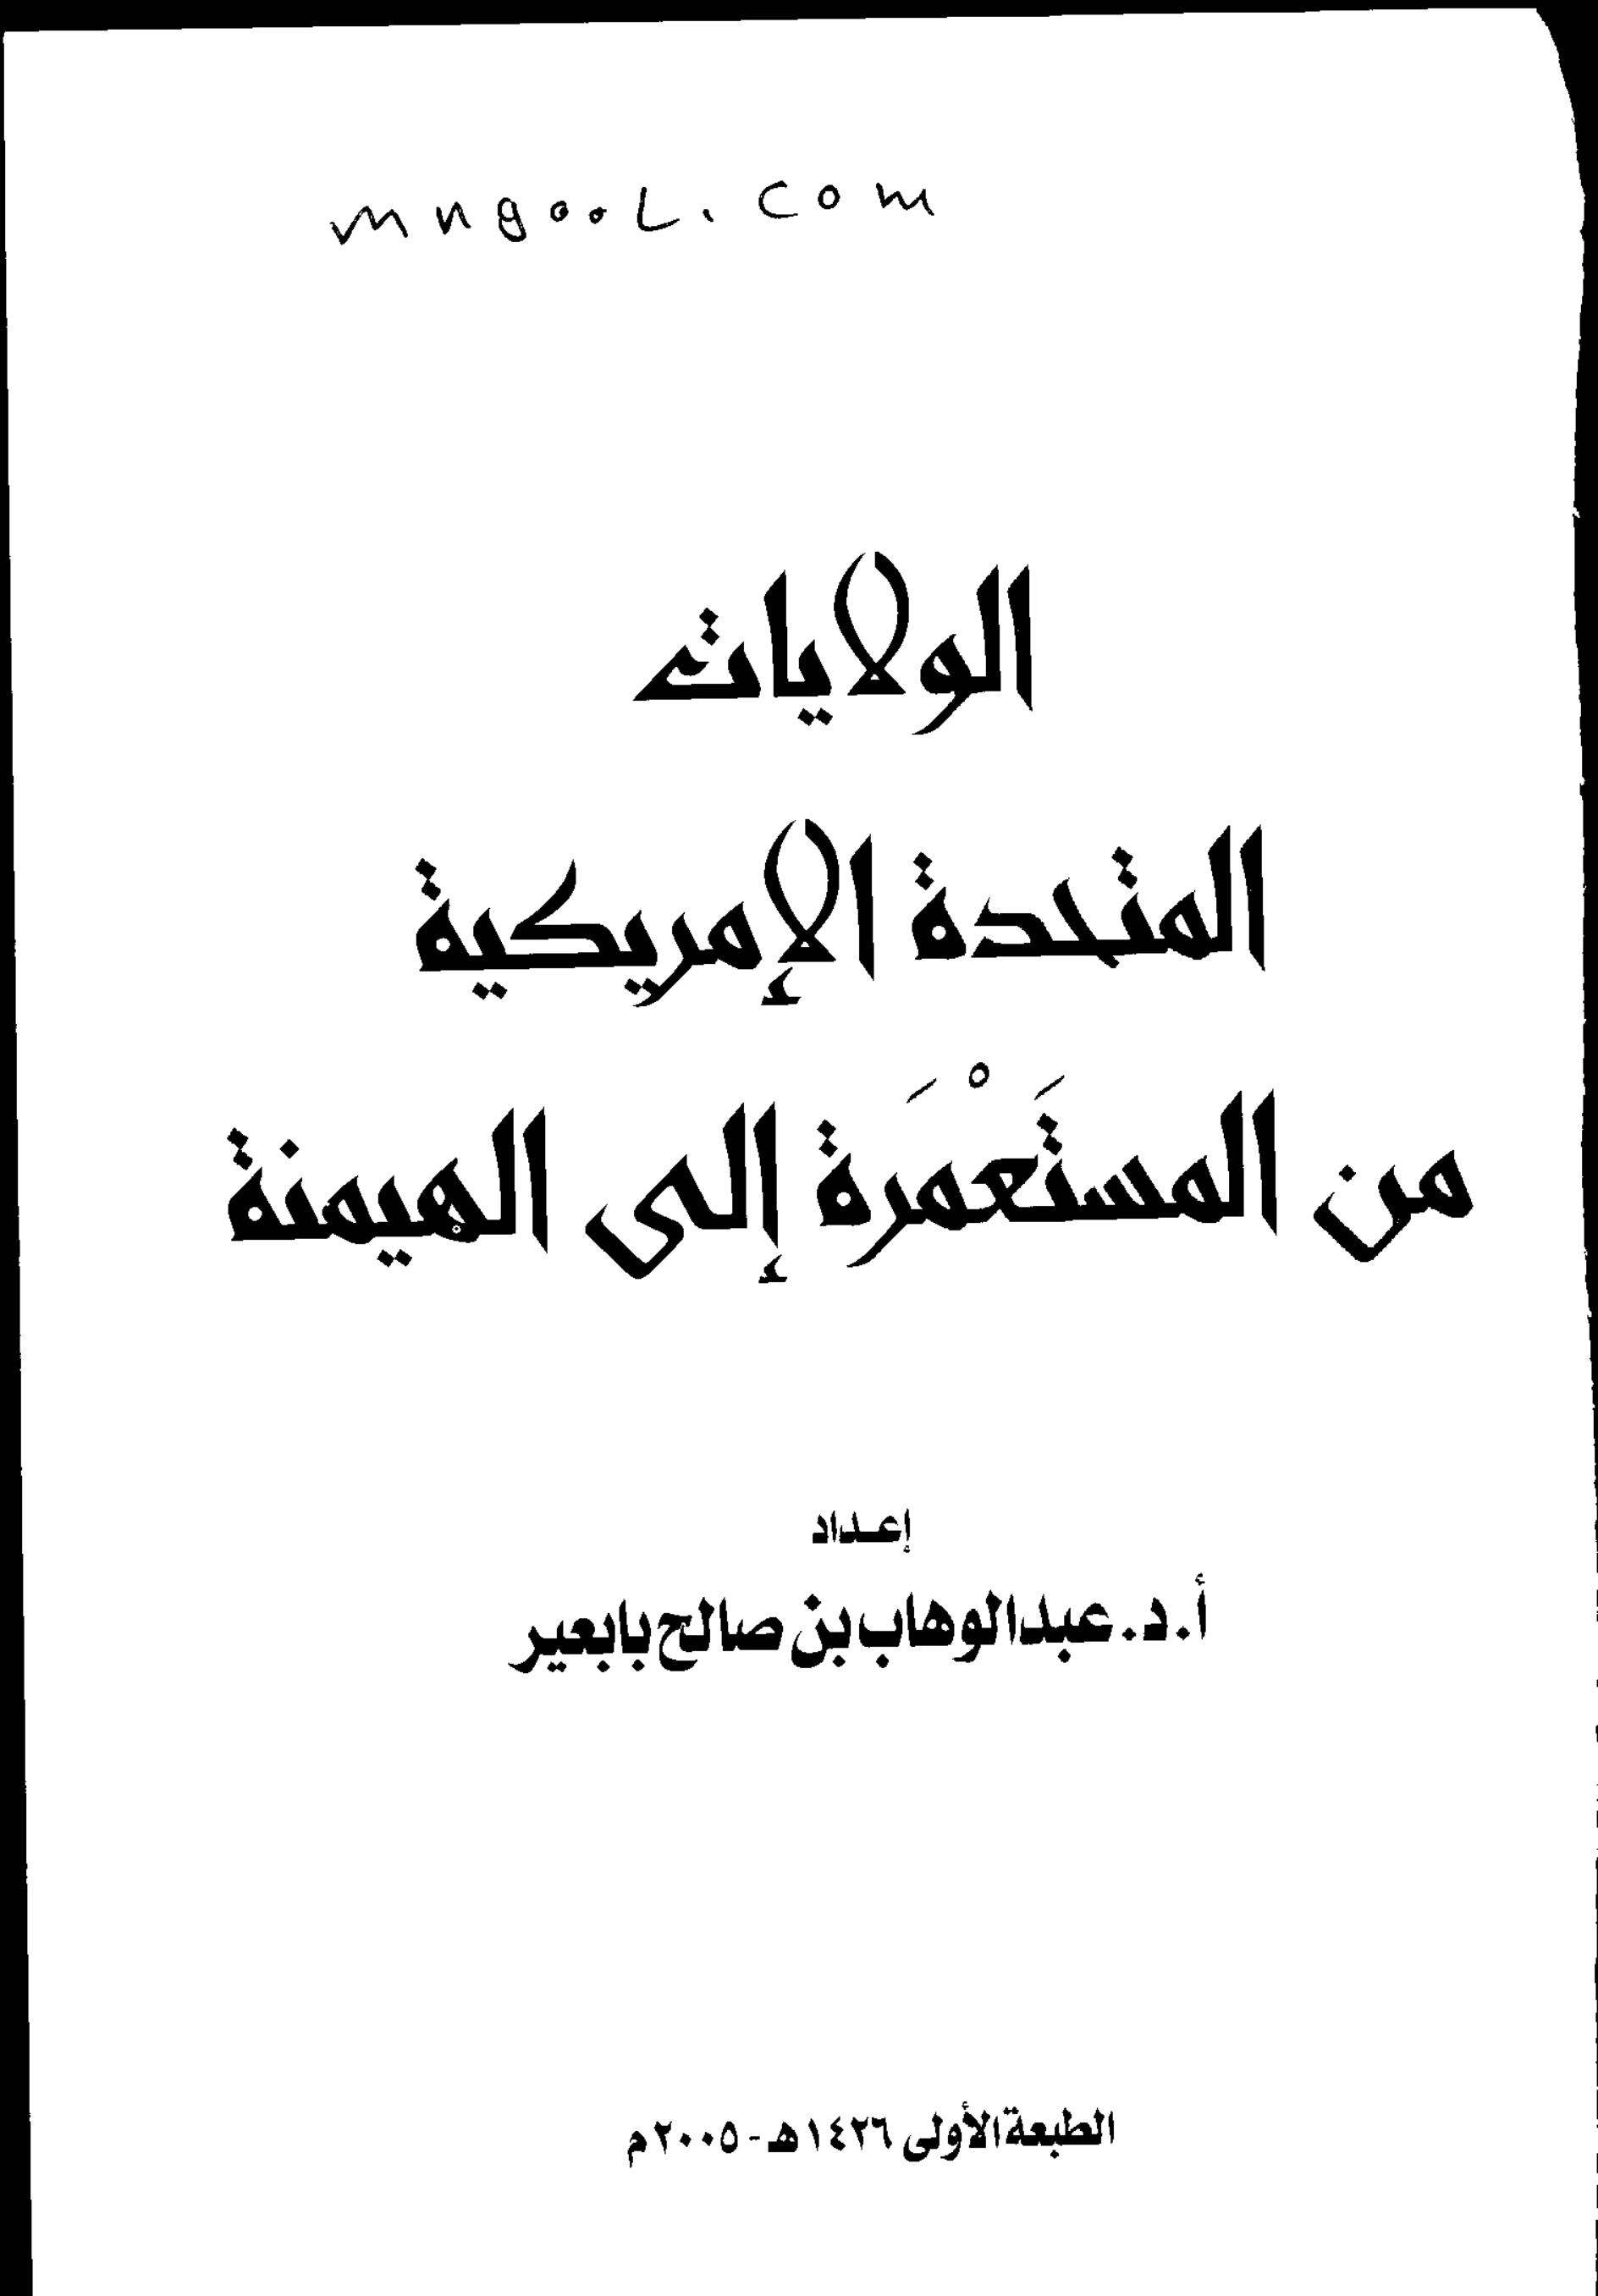 mngooL.com
الولايات
المتحدة الإمريكية
من المستَعْمَرة إلى الهيمنة
إعـداد
أ.د. عبدالوهاب بن صالح بابعير
الطبعة الأولى ١٤٢٦هـ - ٢٠٠٥م